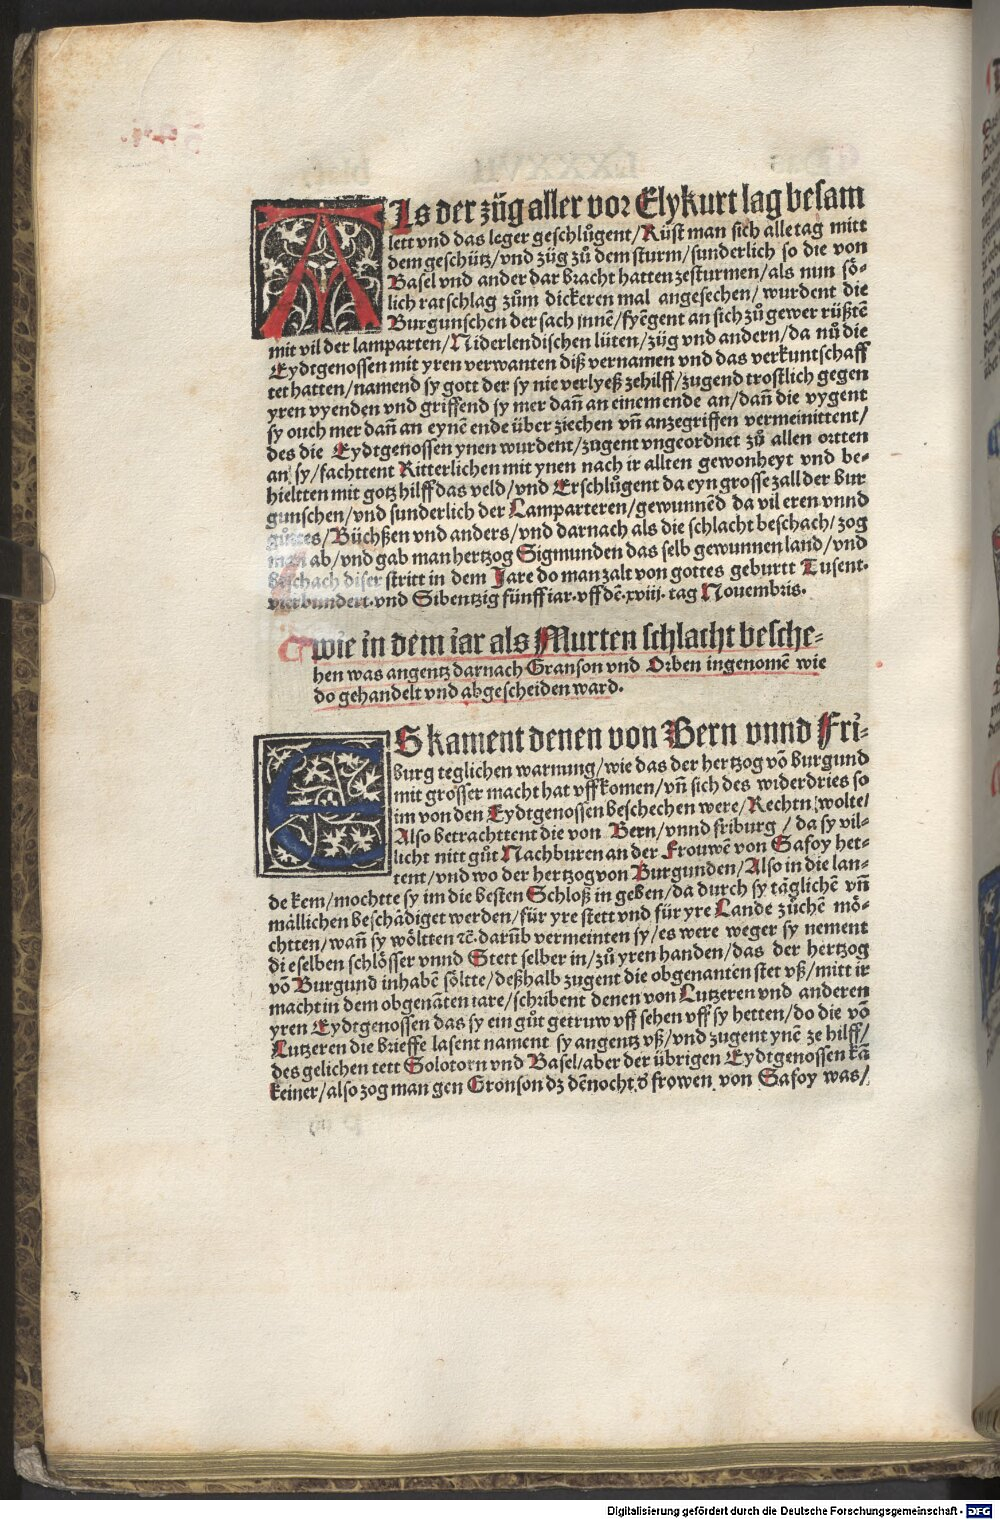 Als der züg aller vor Elykurt lag besam
lett vnd das leger geschlůgent/Rüst man sich alle tag mitt
dem geschütz/vnd züg zů dem sturm/sunderlich so die von
Basel vnd ander dar bracht hatten zesturmen/als nun sö-
lich ratschlag zům dickeren mal angesechen/wurdent die
Burgunschen der sach jnnē/fyēgent an sich zů gewer rüßtē
mit vil der lamparten/Niderlendischen lüten/züg vnd andern/da nů die
Eydtgenossen mit yren verwanten diß vernamen vnd das verkuntschaff
tet hatten/namend sy gott der sy nie verlyeß zehilff/zugend trostlich gegen
yren vyenden vnd griffend sy mer dañ an einem ende an/dañ die vygent
sy ouch mer dañ an eynē ende über ziechen vñ anzegriffen vermeinittent/
des die Eydtgenossen ynen wurdent/zugent vngeordnet zů allen ortten
an sy/fachttent Ritterlichen mit ynen nach ir allten gewonheyt vnd be-
hieltten mit gotz hilff das veld/vnd Erschlůgent da eyn grosse zall der Bur
gunschen/vnd sunderlich der Lamparteren/gewunnēd da vil eren vnnd
gůttes/Büchßen vnd anders/vnd darnach als die schlacht beschach/zog
man ab/vnd gab man hertzog Sigmunden das selb gewunnen land/vnd
beschach diser stritt in dem Jare do man zalt von gottes geburtt Tusent.
vierhundert.vnd Sibentzig fünff iar.vff dē.xviij.tag Nouembris.
wie in dem iar als Murten schlacht besche-
hen was angentz darnach Granson vnd Orben ingenomē wie
do gehandelt vnd abgescheiden ward.
ES kament denen von Bern vnnd Fri-
burg teglichen warnung/wie das der hertzog vō burgund
mit grosser macht hat vffkomen/vñ sich des widerdries so
im von den Eydtgenossen beschechen were/Rechtn wolte/
Also betrachttent die von Bern/vnnd friburg/da sy vil-
licht nitt gůt Nachburen an der Frouwē von Safoy het-
tent/vnd wo der hertzog von Burgunden/Also in die lan-
de kem/mochtte sy im die besten Schloß in geben/da durch sy täglichē vñ
mällichen beschädiget werden/für yre stett vnd für yre Lande zůchē mö-
chtten/wañ sy wöltten ⁊c.darūb vermeinten sy/es were weger sy nement
di eselben schlösser vnnd Stett selber in/zů yren handen/das der hertzog
vō Burgund inhabē söltte/deßhalb zugent die obgenanten stet vß/mitt ir
macht in dem obgenāten iare/schribent denen von Lutzeren vnd anderen
yren Eydtgenossen das sy ein gůt getruw vff sehen vff sy hetten/do die vō
Lutzeren die brieffe lasent nament sy angentz vß/vnd zugent ynē ze hilff/
des gelichen tett Solotorn vnd Basel/aber der übrigen Eydtgenossen kā
keiner/also zog man gen Gronson dz dēnocht d' frowen von Safoy was/
Digitalisierung gefördert durch die Deutsche Forschungsgemeinschaft - DFG